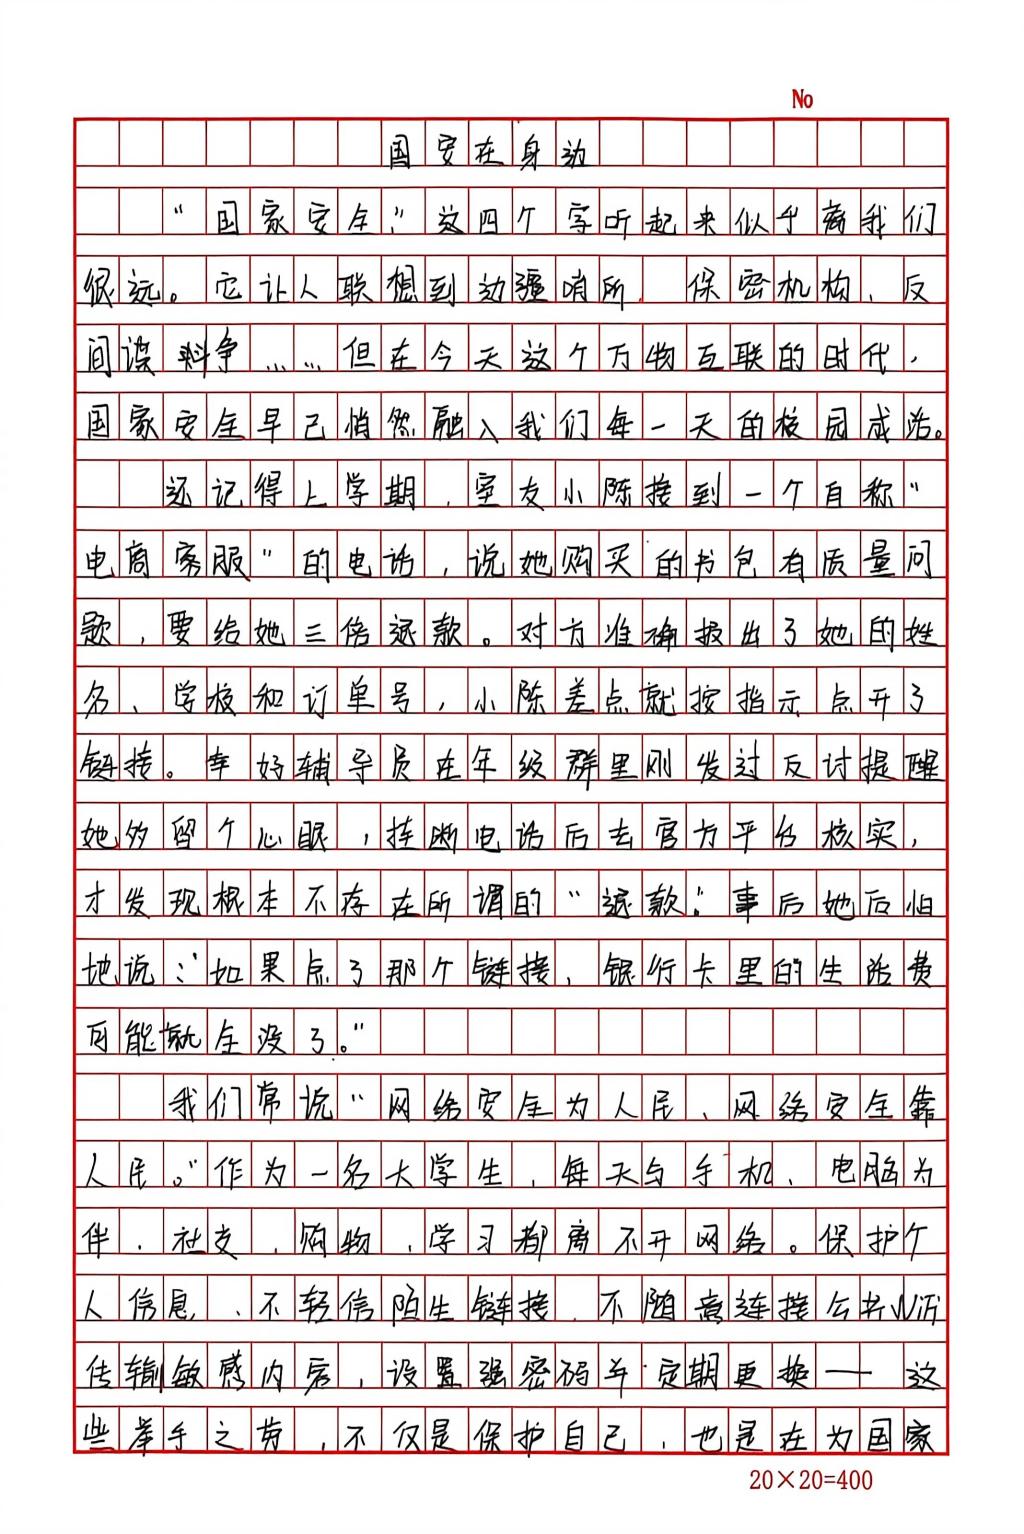 No
国安在身边
“国家安全”这四个字听起来似乎离我们
很远。它让人联想到边疆哨所、保密机构、反
间谍斗争……但在今天这个万物互联的时代，
国家安全早已悄然融入我们每一天的校园生活。
还记得上学期，室友小陈接到一个自称“
电商客服”的电话，说她购买的书包有质量问
题，要给她三倍退款。对方准确报出了她的姓
名、学校和订单号，小陈差点就按指示点开了
链接。幸好辅导员在年级群里刚发过反讨提醒
她多留个心眼，挂断电话后去官方平台核实，
才发现根本不存在所谓的“退款”。事后她后怕
地说：“如果点了那个链接，银行卡里的生活费
可能就全没了。”
我们常说“网络安全为人民、网络安全靠
人民。”作为一名大学生，每天与手机、电脑为
伴，社交，购物，学习都离不开网络。保护个
人信息、不轻信陌生链接、不随意连接公共Wi
传输敏感内容，设置强密码并定期更换——这
些举手之劳，不仅是保护自己，也是在为国家
20×20=400